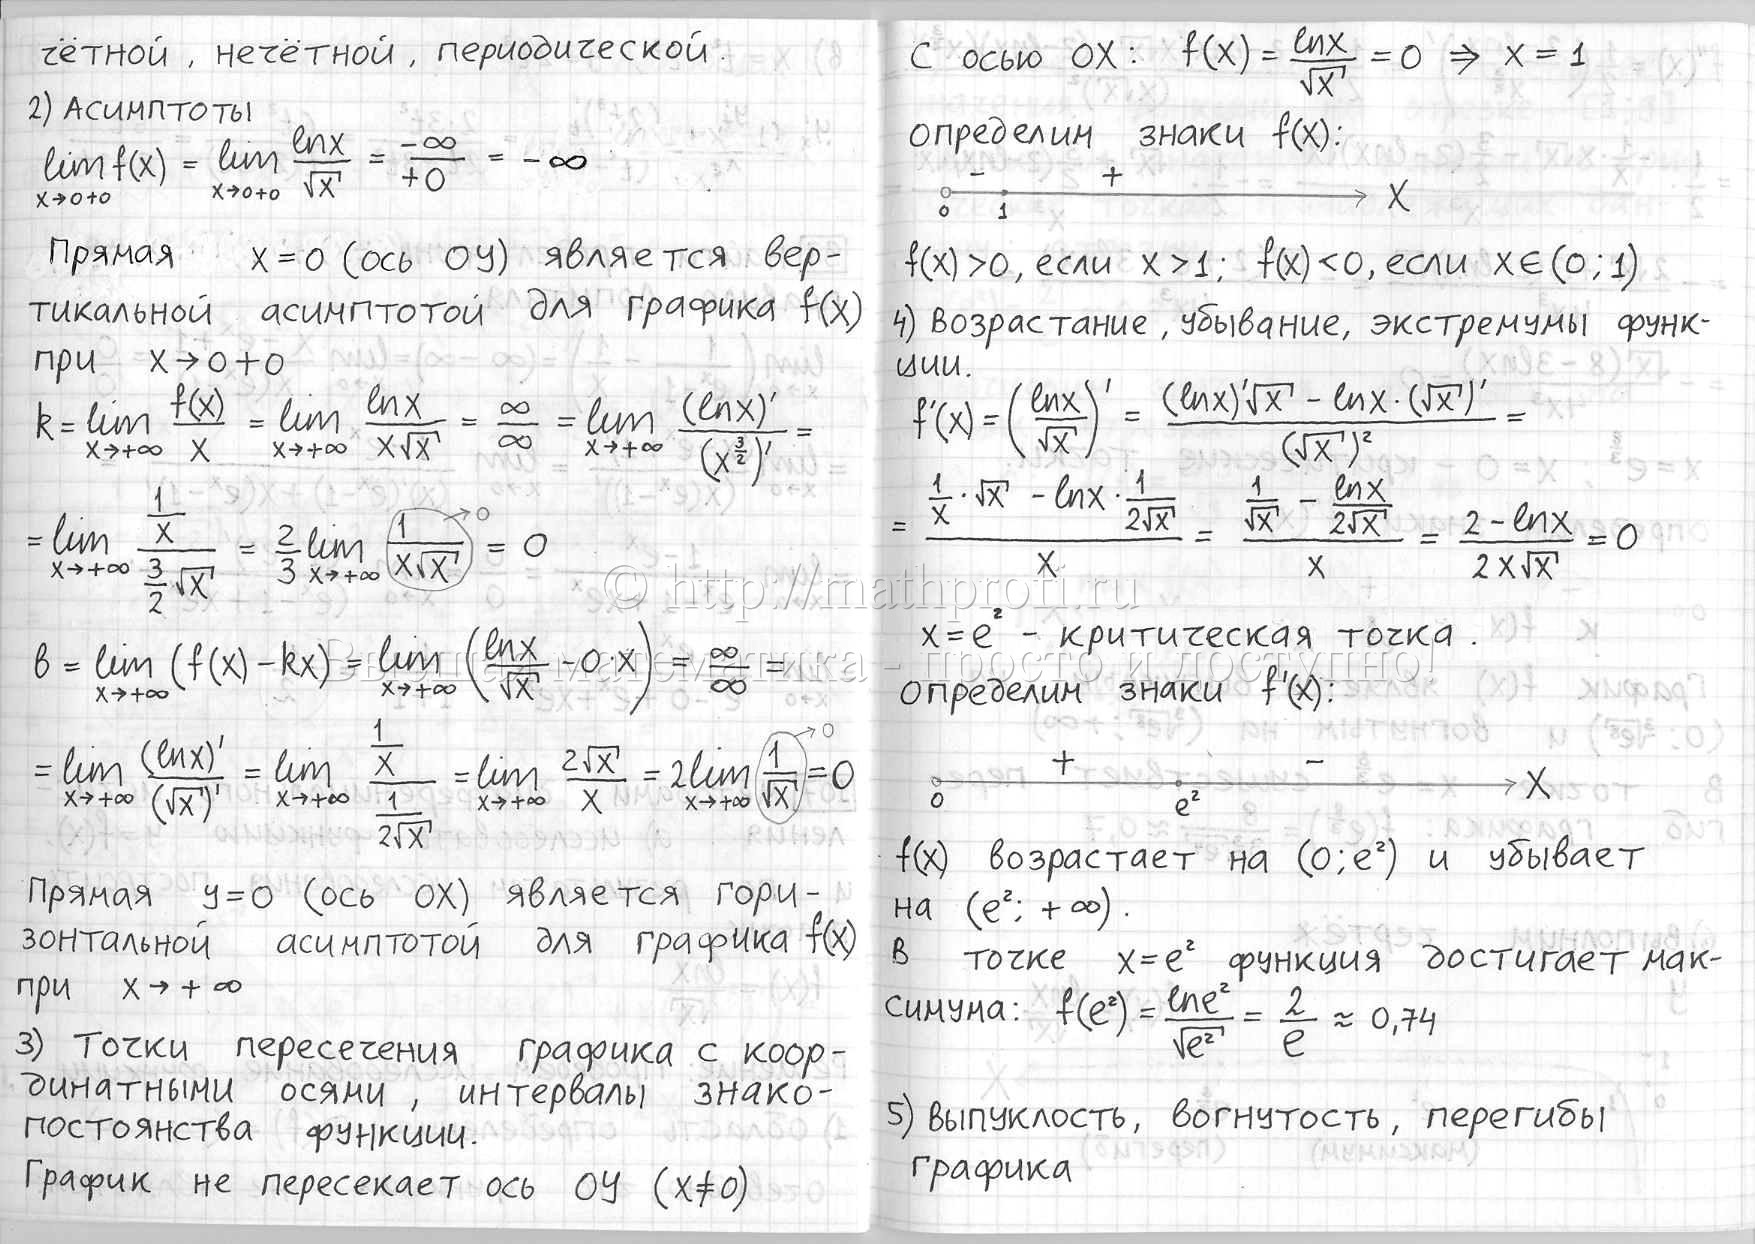 чётной, нечётной, периодической.
2) Асимптоты
lim f(x) = lim lnx/√x = -∞/+0 = -∞
x→0+0 x→0+0
Прямая x=0 (ось OY) является вер-
тикальной асимптотой для графика f(x)
при x→0+0
k = lim f(x)/x = lim lnx/x√x = ∞/∞ = lim (lnx)'/(x^(3/2))' =
x→+∞ x→+∞ x→+∞
= lim (1/x)/(3/2 √x) = 2/3 lim 1/x√x →0 = 0
x→+∞ x→+∞
b = lim (f(x) - kx) = lim (lnx/√x - 0·x) = ∞/∞ =
x→+∞ x→+∞
= lim (lnx)'/(√x)' = lim (1/x)/(1/2√x) = lim 2√x/x = 2lim 1/√x →0 = 0
x→+∞ x→+∞ x→+∞ x→+∞
Прямая y=0 (ось OX) является гори-
зонтальной асимптотой для графика f(x)
при x→+∞
3) Точки пересечения графика с коор-
динатными осями, интервалы знако-
постоянства функции.
График не пересекает ось OY (x≠0)
С осью OX: f(x) = lnx/√x = 0 ⇒ x = 1
определим знаки f(x):
- +
0 1 X
f(x)>0, если x>1; f(x)<0, если x∈(0;1)
4) Возрастание, убывание, экстремумы функ-
ции.
f'(x) = (lnx/√x)' = ((lnx)'√x - lnx·(√x)')/(√x)² =
= (1/x·√x - lnx·1/2√x)/x = (1/√x - lnx/2√x)/x = (2-lnx)/2x√x = 0
x=e² - критическая точка.
определим знаки f'(x):
+ -
0 e² X
f(x) возрастает на (0;e²) и убывает
на (e²; +∞).
В точке x=e² функция достигает мак-
симума: f(e²) = lne²/√e² = 2/e ≈ 0,74
5) Выпуклость, вогнутость, перегибы
графика
© http://mathprofi.ru
Высшая математика - просто и доступно!